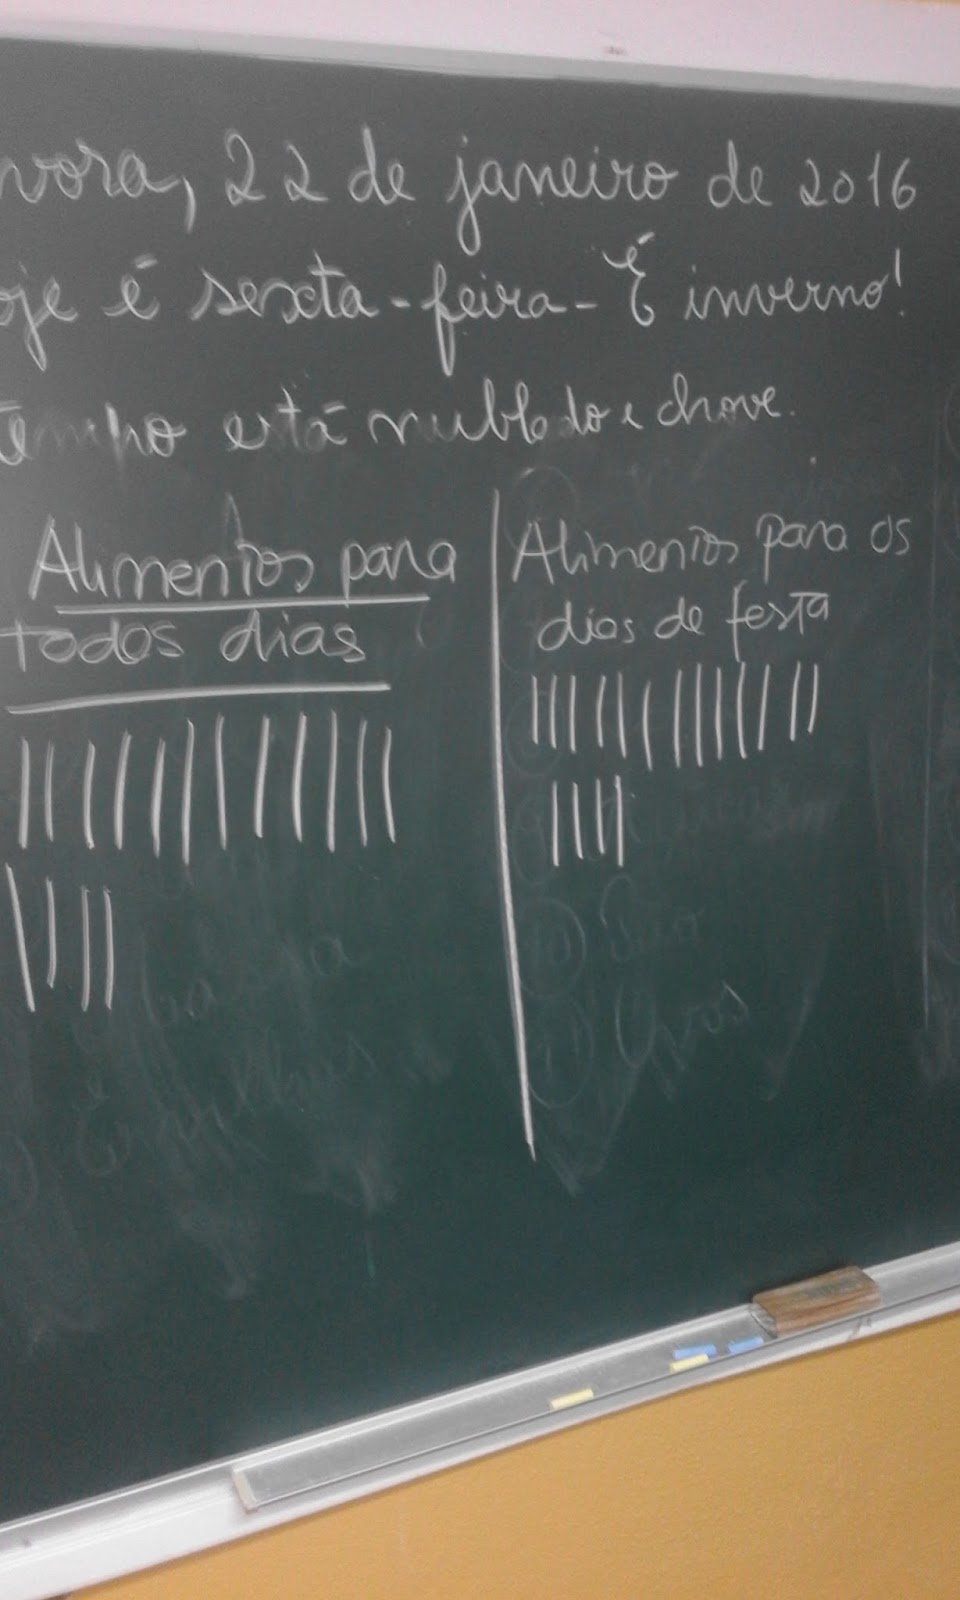 vora, 22 de janeiro de 2016
oje é sexta-feira- É inverno!
tempo está nublado e chove.
Alimentos para
todos dias
Alimentos para os
dias de festa